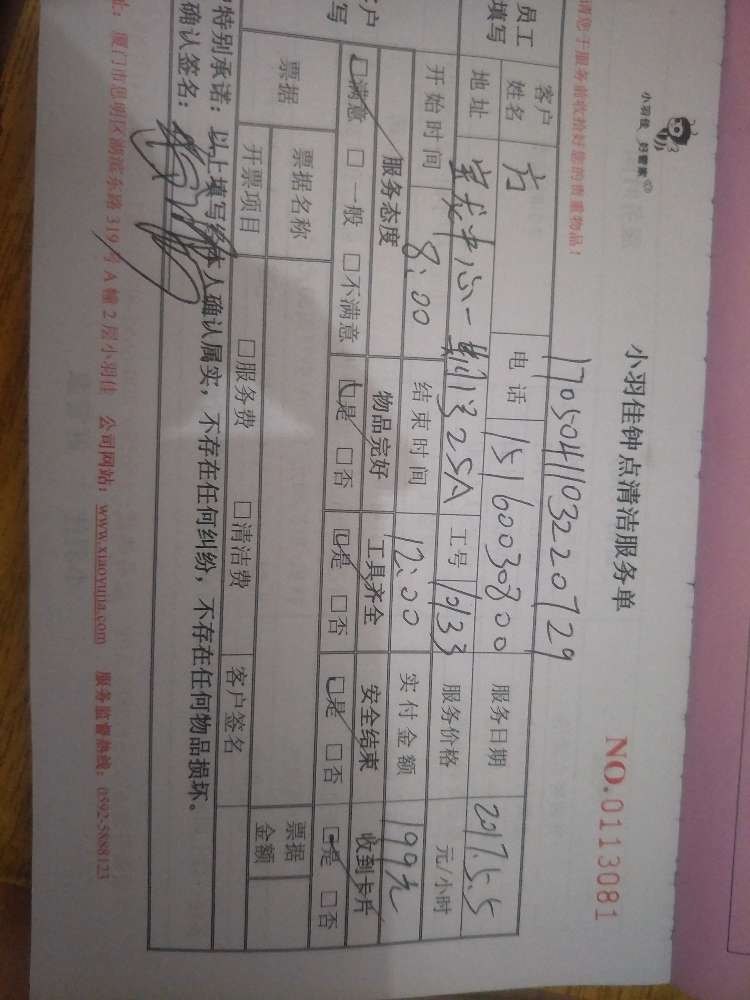 小羽佳 好管家
小羽佳钟点清洁服务单
NO.0113081
请您于服务前收拾好您的贵重物品！
17050411103220729
员工填写
客户姓名 方 电话 15160030800 服务日期 2017.5.5
地址 宝龙中心一期 25A 工号 10133 服务价格 元/小时
开始时间 8:00 结束时间 12:00 实付金额 199元
客户 写
服务态度 物品完好 工具齐全 安全结束 收到卡片
□满意 □一般 □不满意 □是 □否 □是 □否 □是 □否 □是 □否
票据 票据名称 票据金额
开票项目 □服务费 □清洁费 客户签名
特别承诺：以上填写经本人确认属实，不存在任何纠纷，不存在任何物品损坏。
确认签名：
址：厦门市思明区湖滨东路319号A幢2层小羽佳 公司网站：www.xiaoyujia.com 服务监督热线：0592-5888123